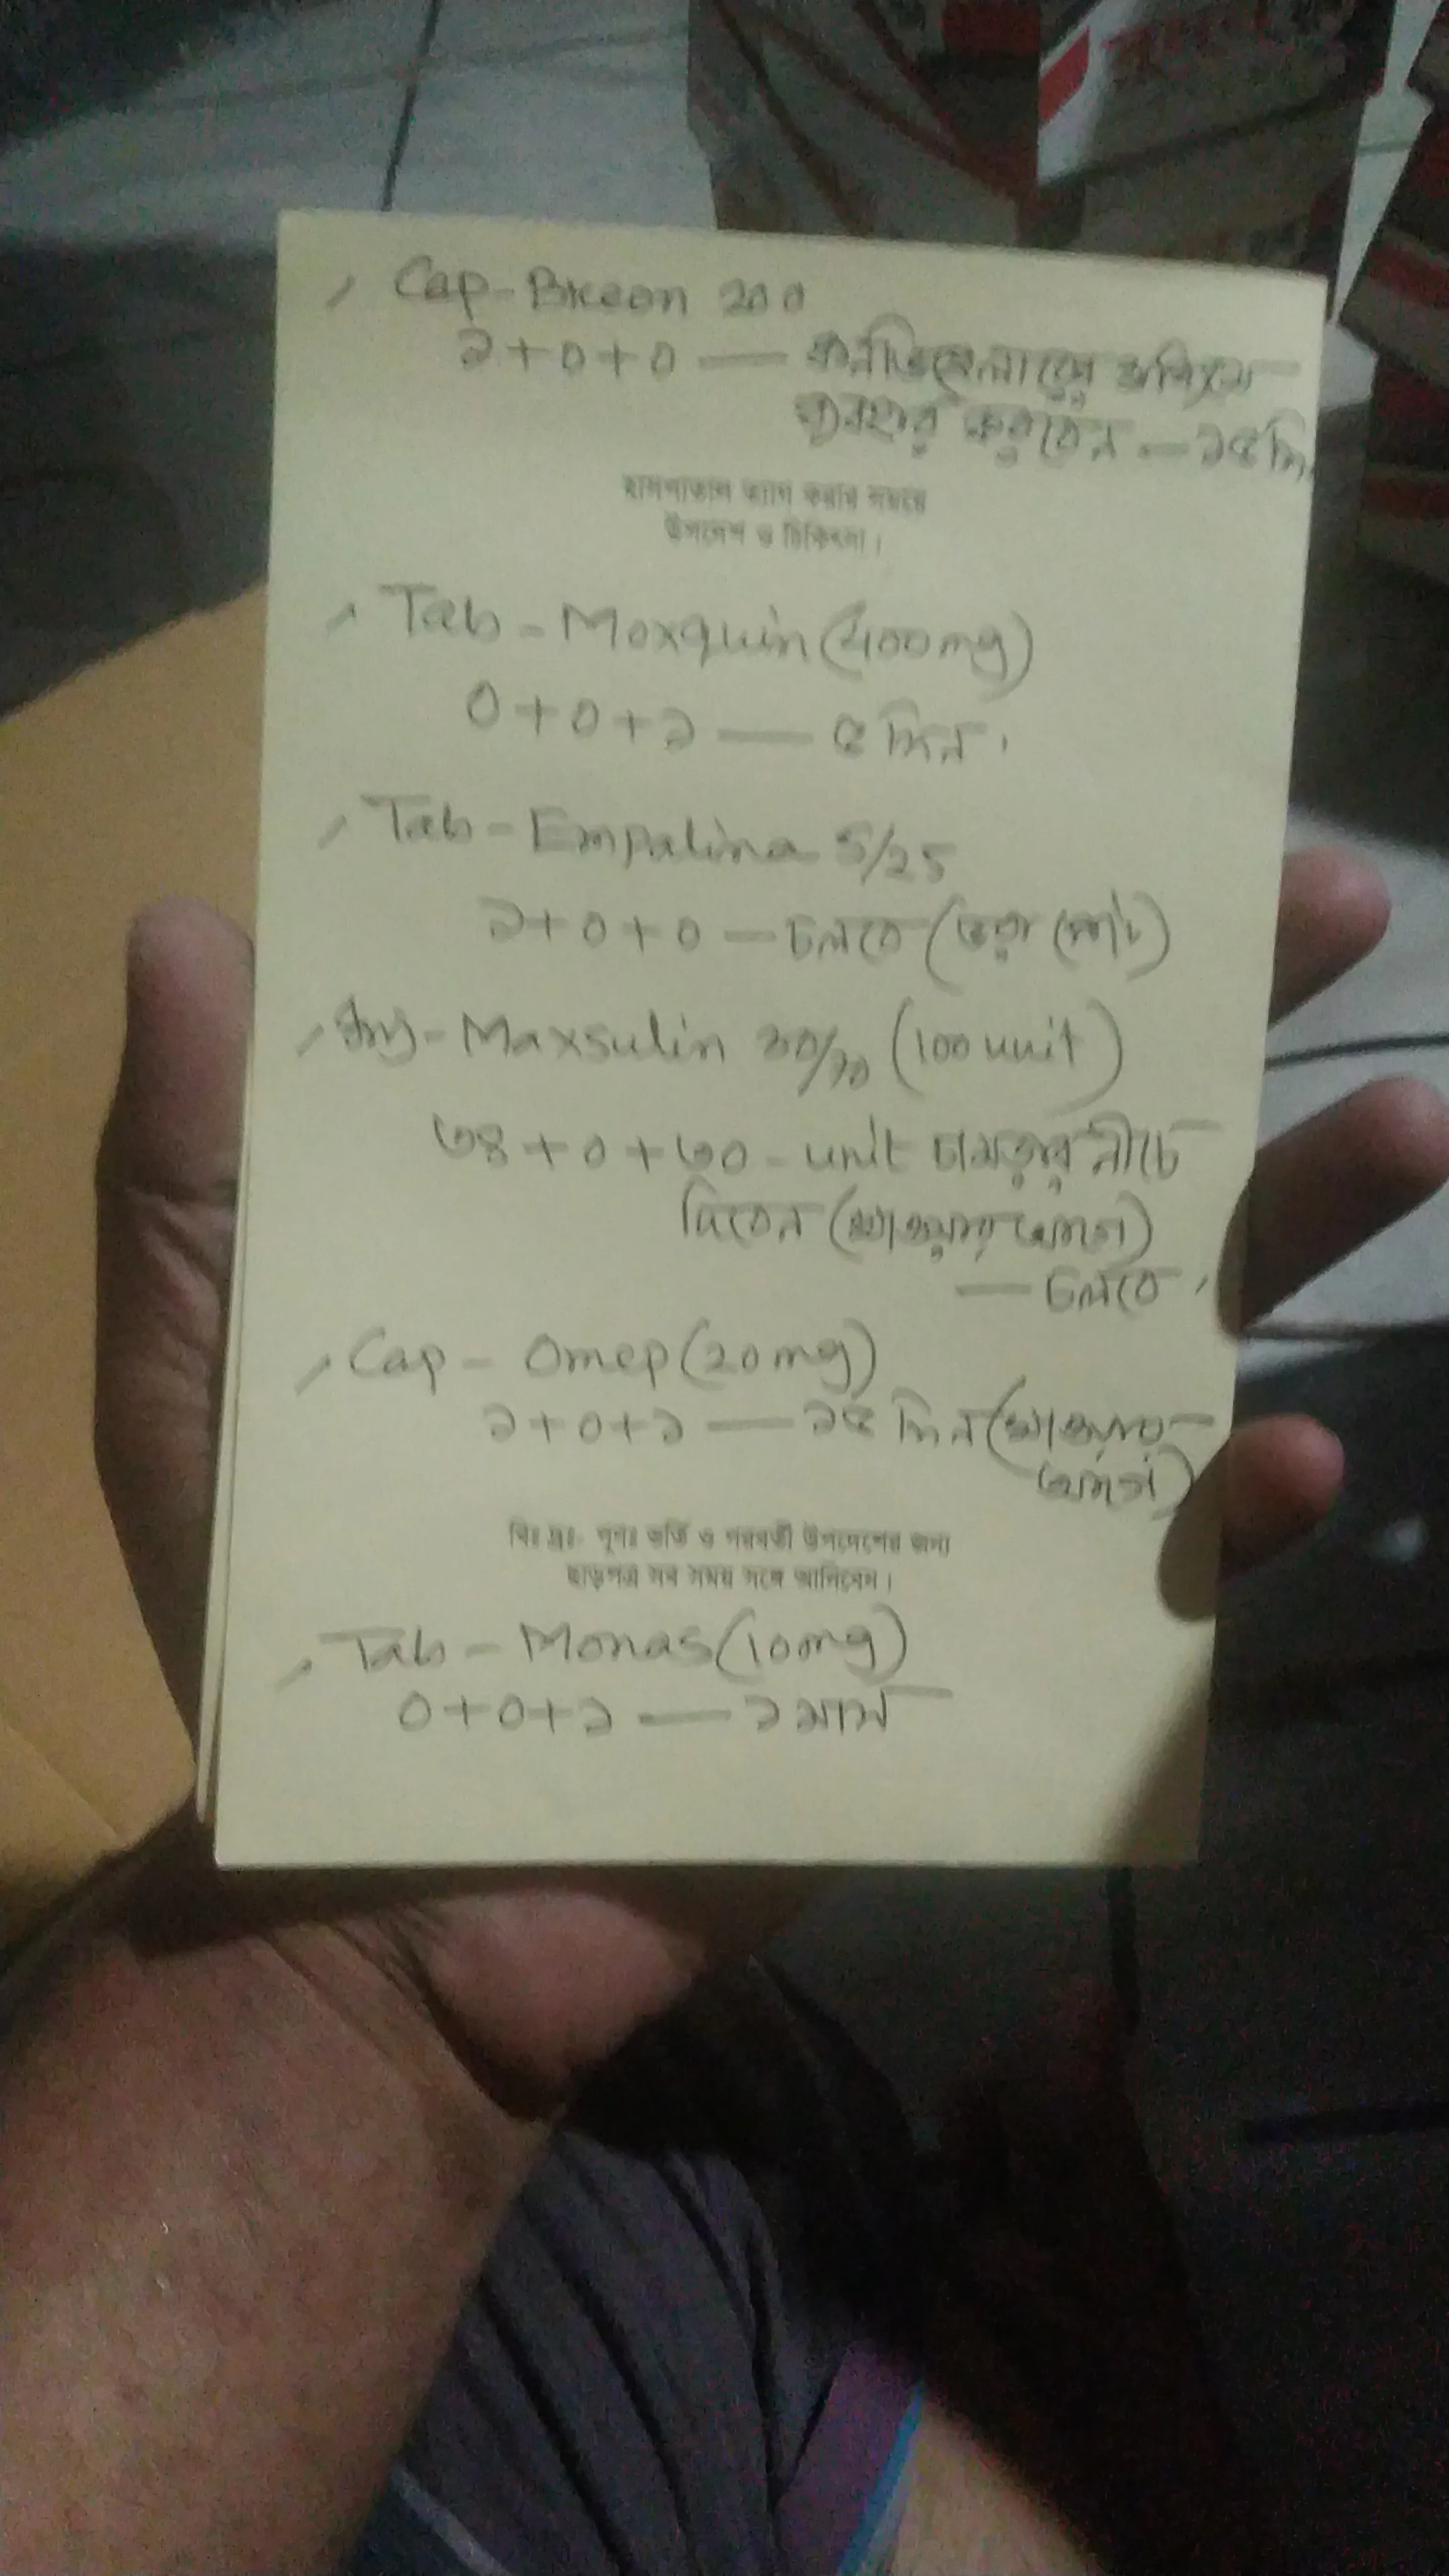 Cap - Breon 200
১+০+০ — কনভিহেলারের সাহায্যে
ব্যবহার করবেন — ১৫ দি
হাসপাতাল ত্যাগ করার সময়ে
উপদেশ ও চিকিৎসা।
Tab - Moxquin (400mg)
০+০+১ — ৫ দিন।
Tab - Empalina 5/25
১+০+০ — চলবে (ভরা পেটে)
Inj - Maxsulin 30/70 (100 unit)
৩৪+০+৩০ - unit চামড়ার নীচে
দিবেন (খাওয়ার আগে)
— চলবে,
Cap - Omep (20mg)
১+০+১ — ১৫ দিন (খাওয়ার
আগে)
বিঃ দ্রঃ- পুণঃ ভর্তি ও পরবর্তী উপদেশের জন্য
ছাড়পত্র সব সময় সঙ্গে আনিবেন।
Tab - Monas (10mg)
০+০+১ — ১ মাস